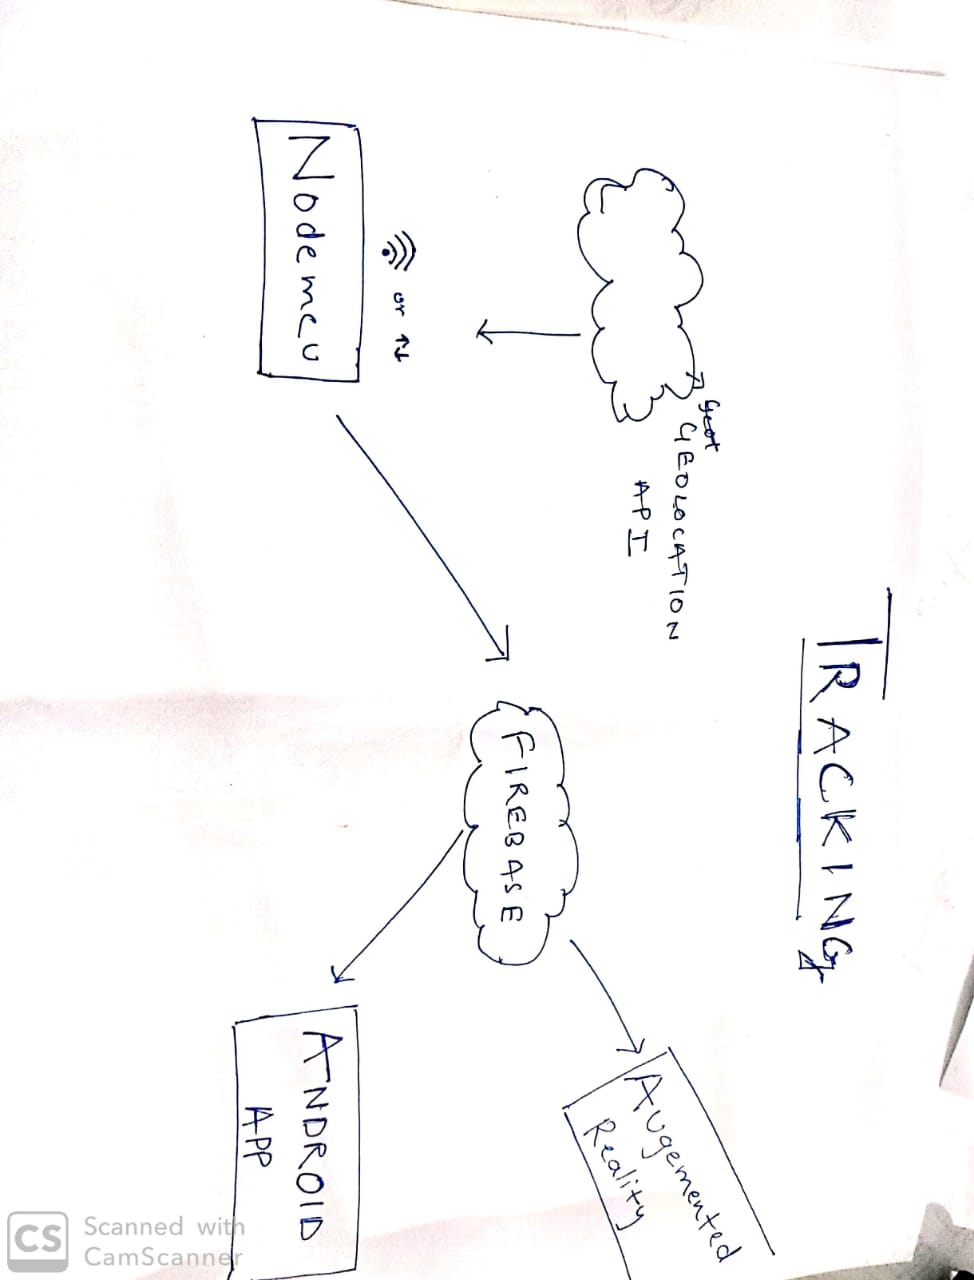 TRACKING
Geot
GEOLOCATION
API
or
Nodemcu
FIREBASE
Augemented
Reality
ANDROID
APP
CS
Scanned with
CamScanner